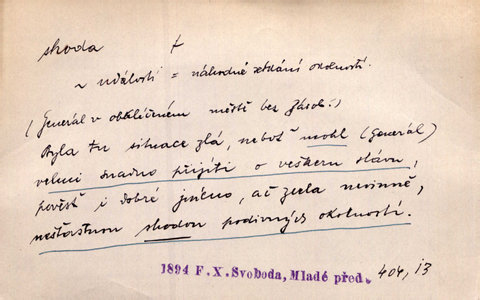 shoda †
~ událostí = náhodné setkání okolností.
(Generál v obklíčeném městě bez zásob:)
Byla tu situace zlá, neboť mohl (Generál)
velmi snadno přijíti o veškeru slávu,
pověst i dobré jméno, ač zcela nevinně,
nešťastnou shodou podivných okolností.
1894 F. X. Svoboda, Mladé před. 404, 13